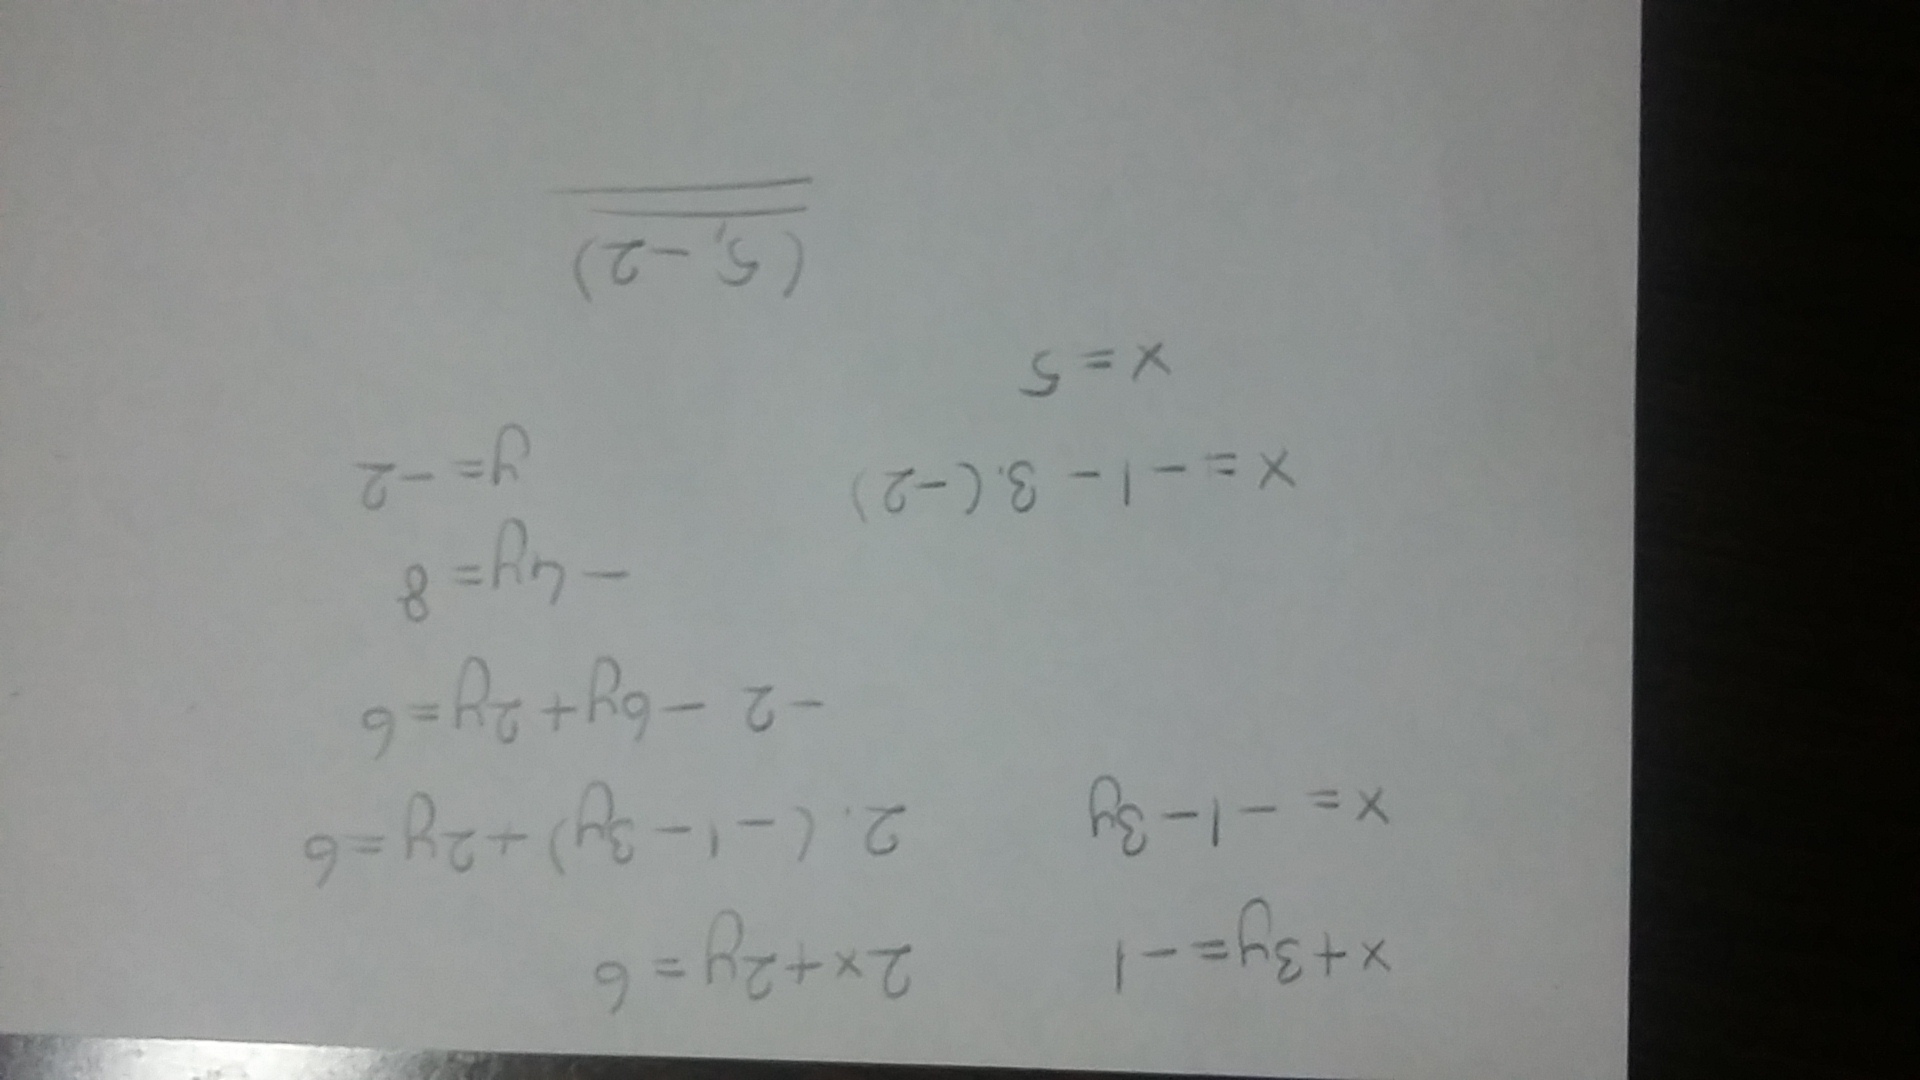 x+3y=-1 2x+2y=6
x=-1-3y 2.(-1-3y)+2y=6
-2-6y+2y=6
-4y=8
x=-1-3.(-2) y=-2
x=5
(5,-2)